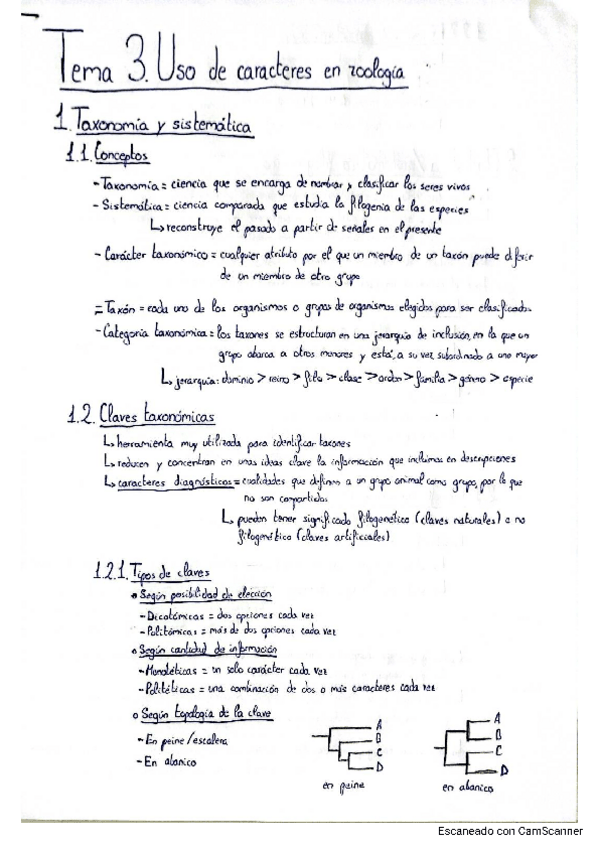 Tema 3. Uso de caracteres en zoología
1. Taxonomía y sistemática
1.1. Conceptos
- Taxonomía = ciencia que se encarga de nombrar y clasificar los seres vivos
- Sistemática = ciencia comparada que estudia la filogenia de las especies
↳ reconstruye el pasado a partir de señales en el presente
- Carácter taxonómico = cualquier atributo por el que un miembro de un taxón puede diferir
de un miembro de otro grupo
- Taxón = cada uno de los organismos o grupos de organismos elegidos para ser clasificados
- Categoría taxonómica = los taxones se estructuran en una jerarquía de inclusión, en la que un
grupo abarca a otros menores y está, a su vez, subordinado a uno mayor
↳ jerarquía: dominio > reino > filo > clase > orden > familia > género > especie
1.2. Claves taxonómicas
↳ herramienta muy utilizada para identificar taxones
↳ reducen y concentran en unas ideas clave la información que incluimos en descripciones
↳ caracteres diagnósticos = cualidades que definen a un grupo animal como grupo, por lo que
no son compartidos
↳ pueden tener significado filogenético (claves naturales) o no
filogenético (claves artificiales)
1.2.1. Tipos de claves
• Según posibilidad de elección
- Dicotómicas = dos opciones cada vez
- Politómicas = más de dos opciones cada vez
• Según cantidad de información
- Monotéticas = un solo carácter cada vez
- Politéticas = una combinación de dos o más caracteres cada vez
• Según topología de la clave
- En peine/escalera
- En abanico
A
B
C
D
en peine
A
B
C
D
en abanico
Escaneado con CamScanner